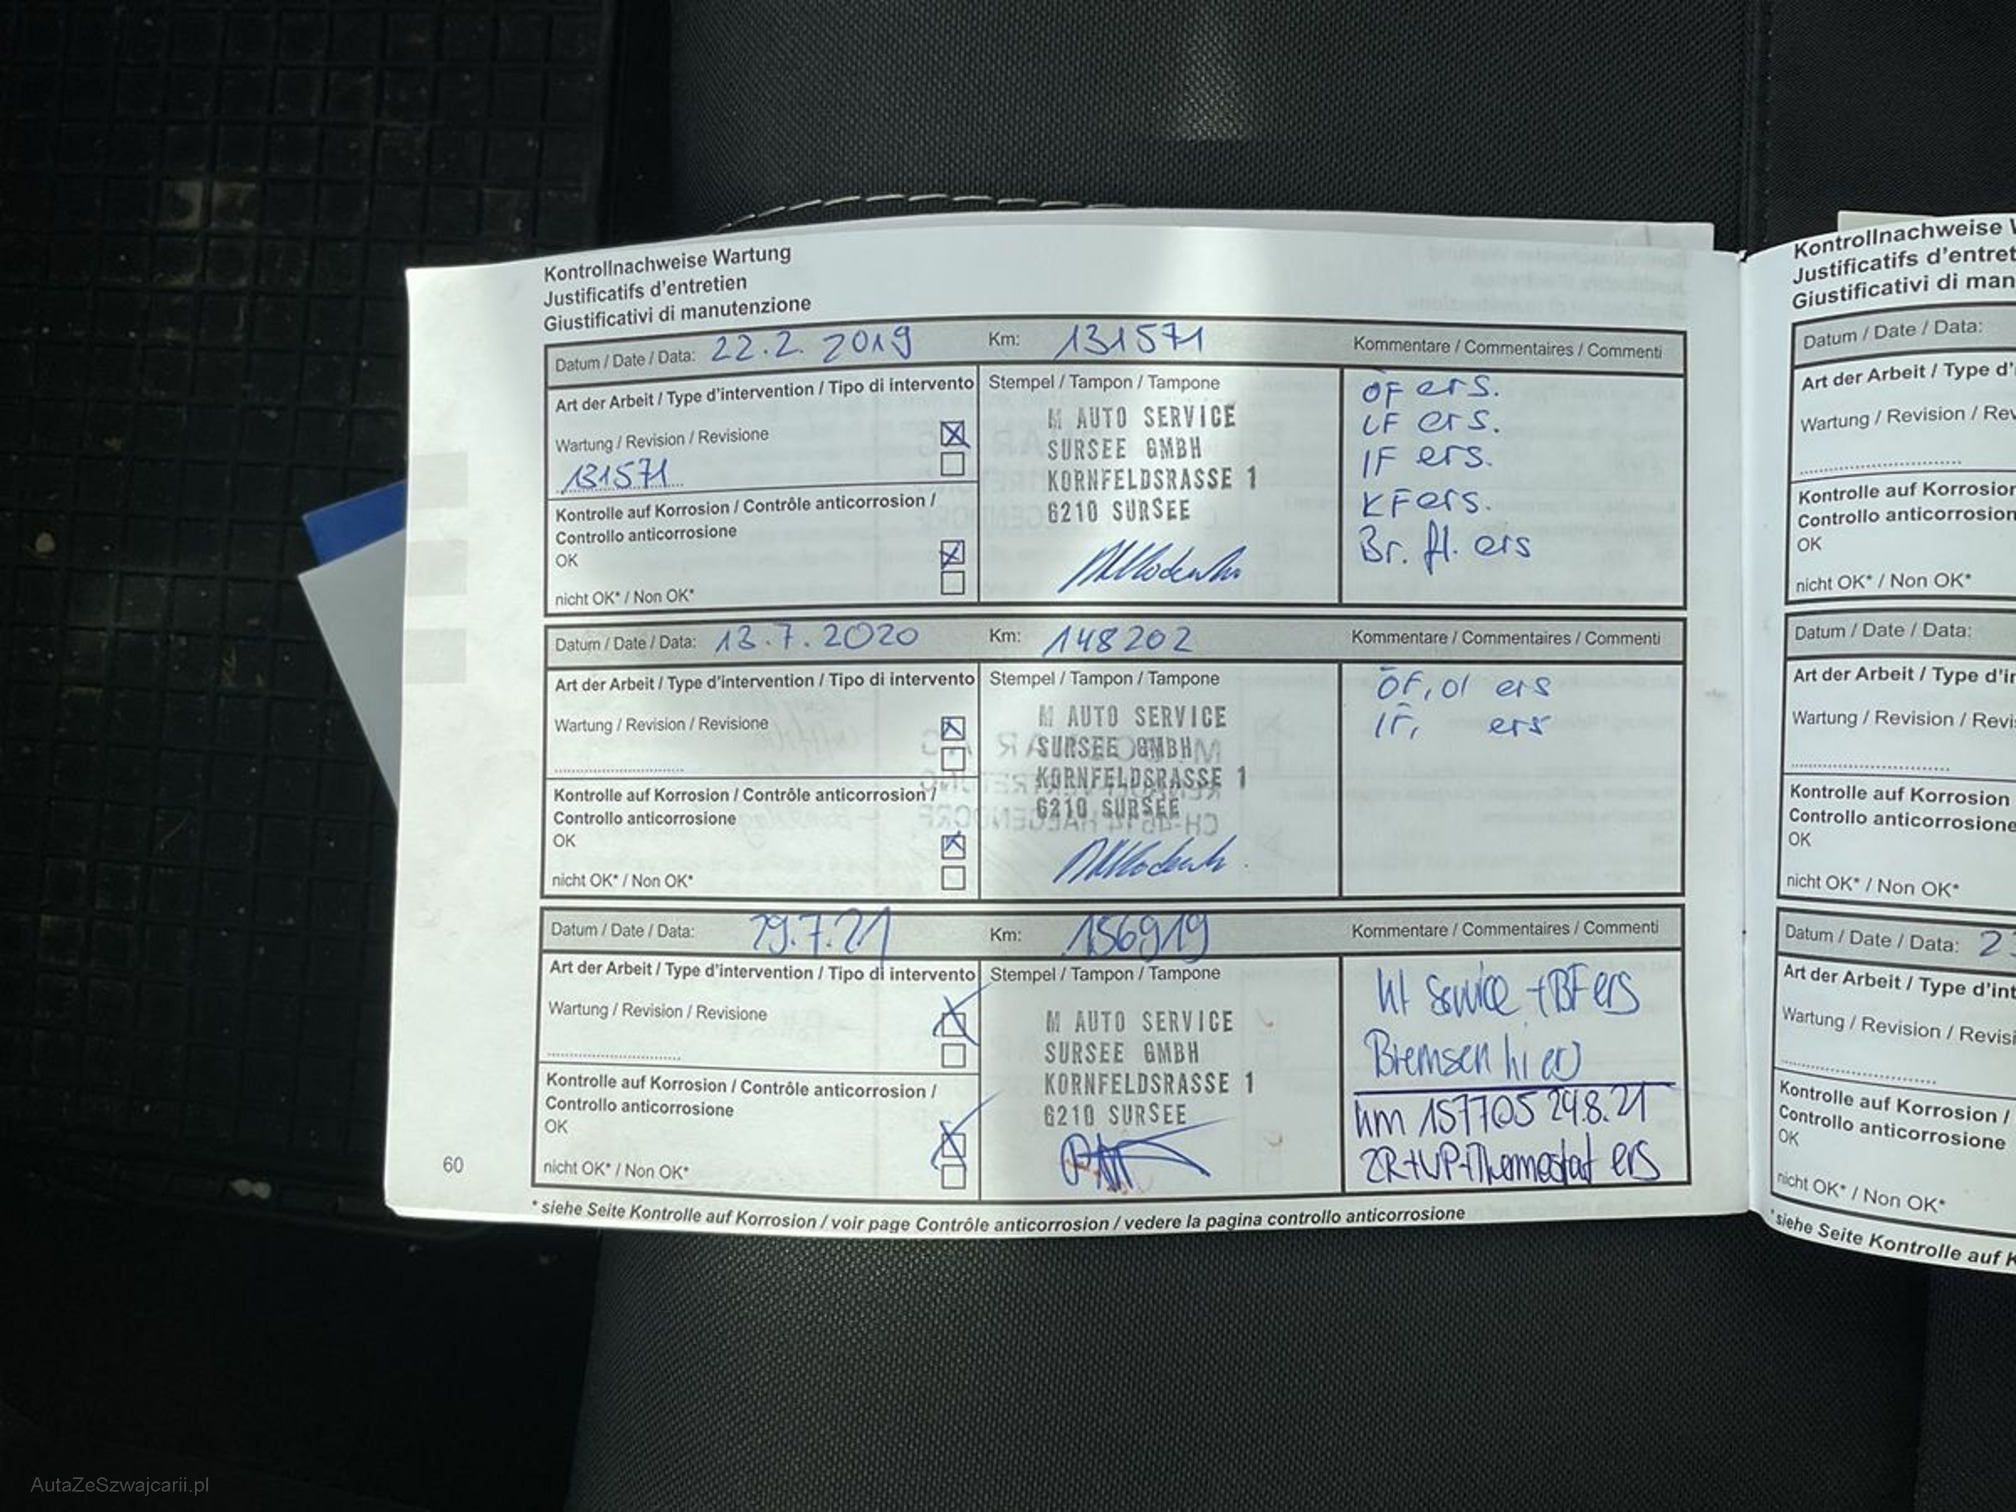 Kontrollnachweise Wartung
Justificatifs d'entretien
Giustificativi di manutenzione
Datum / Date / Data: 22.2.2019 Km: 131571 Kommentare / Commentaires / Commenti
Art der Arbeit / Type d'intervention / Tipo di intervento Stempel / Tampon / Tampone
Wartung / Revision / Revisione
131571
Kontrolle auf Korrosion / Contrôle anticorrosion /
Controllo anticorrosione
OK
nicht OK* / Non OK*
M AUTO SERVICE
SURSEE GMBH
KORNFELDSRASSE 1
6210 SURSEE
ÖF ers.
LF ers.
IF ers.
KF ers.
Br. fl. ers
Datum / Date / Data: 13.7.2020 Km: 148202 Kommentare / Commentaires / Commenti
Art der Arbeit / Type d'intervention / Tipo di intervento Stempel / Tampon / Tampone
Wartung / Revision / Revisione
Kontrolle auf Korrosion / Contrôle anticorrosion /
Controllo anticorrosione
OK
nicht OK* / Non OK*
M AUTO SERVICE
SURSEE GMBH
KORNFELDSRASSE 1
6210 SURSEE
ÖF, Öl ers
IF, ers
Datum / Date / Data: 29.7.21 Km: 156919 Kommentare / Commentaires / Commenti
Art der Arbeit / Type d'intervention / Tipo di intervento Stempel / Tampon / Tampone
Wartung / Revision / Revisione
Kontrolle auf Korrosion / Contrôle anticorrosion /
Controllo anticorrosione
OK
nicht OK* / Non OK*
M AUTO SERVICE
SURSEE GMBH
KORNFELDSRASSE 1
6210 SURSEE
Service + BF ers
Bremsen hi
km 157705 24.8.21
ZR+WP+Thermostat ers
60
* siehe Seite Kontrolle auf Korrosion / voir page Contrôle anticorrosion / vedere la pagina controllo anticorrosione
Kontrollnachweise
Justificatifs d'entret
Giustificativi di man
Datum / Date / Data:
Art der Arbeit / Type d'
Wartung / Revision / Rev
Kontrolle auf Korrosion
Controllo anticorrosion
OK
nicht OK* / Non OK*
Datum / Date / Data:
Art der Arbeit / Type d'in
Wartung / Revision / Revi
Kontrolle auf Korrosion
Controllo anticorrosione
OK
nicht OK* / Non OK*
Datum / Date / Data: 2
Art der Arbeit / Type d'int
Wartung / Revision / Revisi
Kontrolle auf Korrosion /
Controllo anticorrosione
OK
nicht OK* / Non OK*
* siehe Seite Kontrolle auf K
AutaZeSzwajcarii.pl